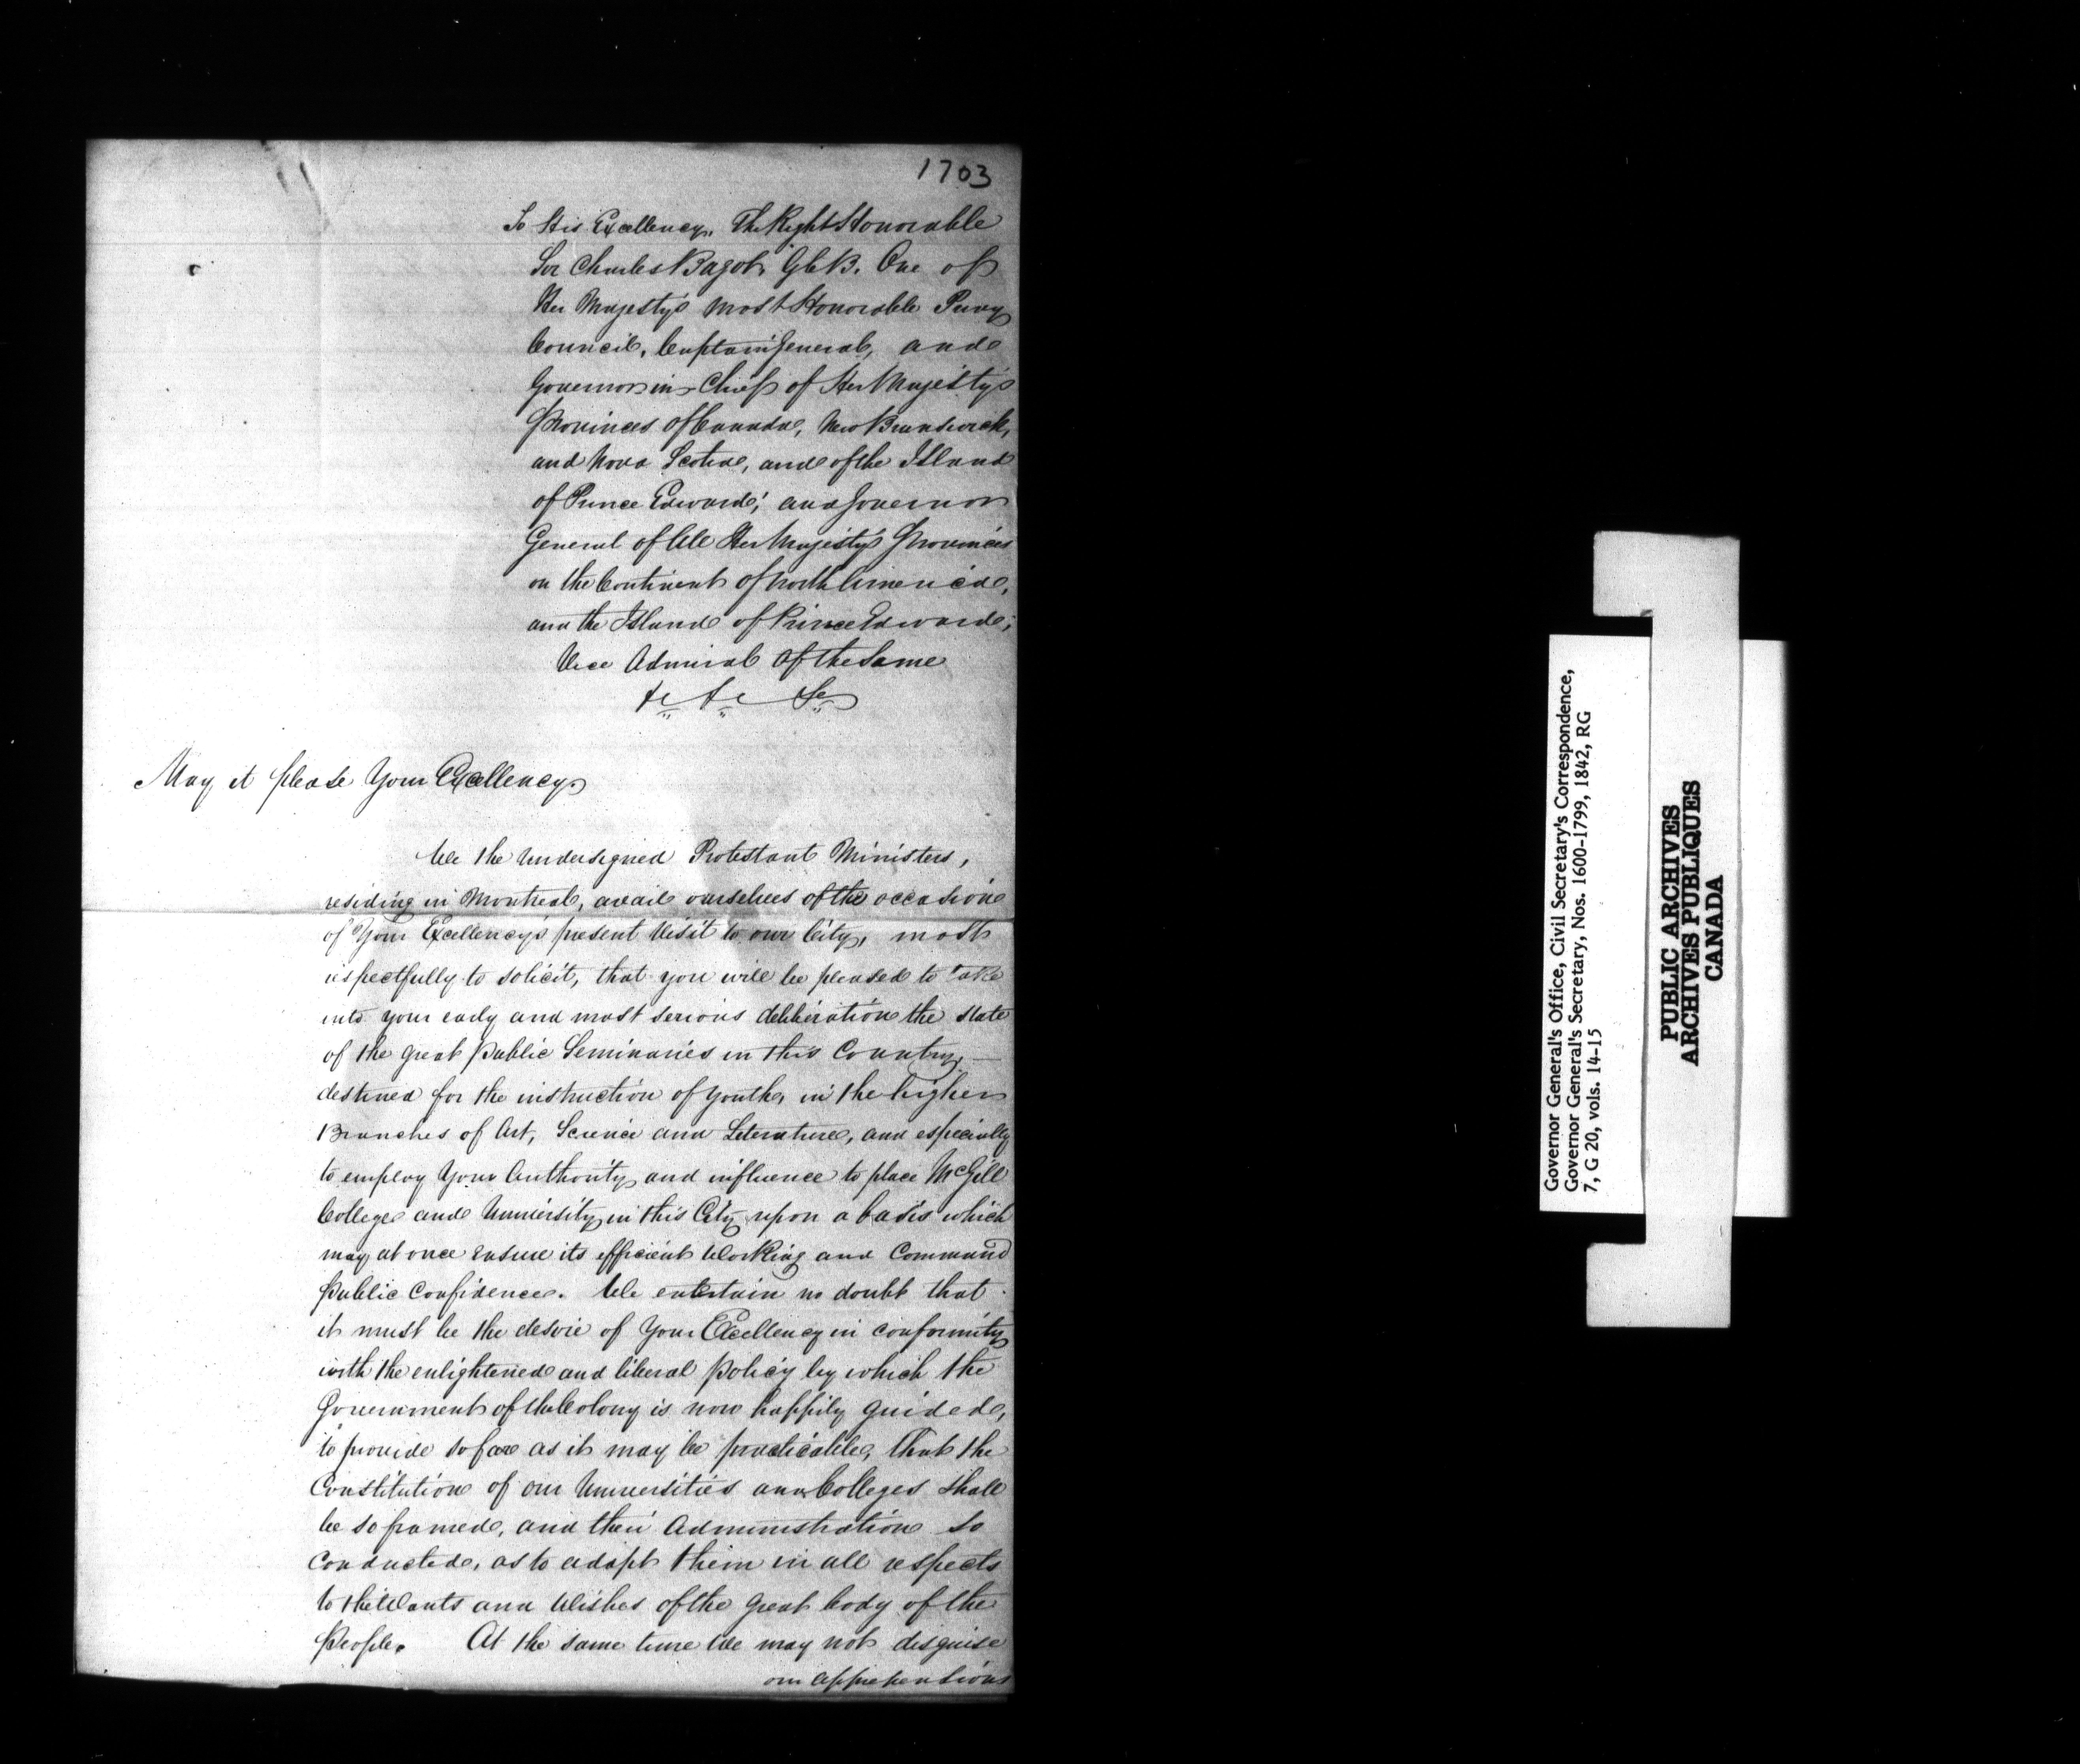 1703
To His Excellency, The Right Honorable
Sir Charles Bagot, GCB. One of
Her Majesty's most Honorable Privy
Council, Captain General, and
Governor in Chief of Her Majesty's
Provinces of Canada, New Brunswick,
and Nova Scotia, and of the Island
of Prince Edward; and Governor
General of All Her Majesty's Provinces
on the Continent of North America,
and the Island of Prince Edward;
Vice Admiral of the Same
&c &c &c
May it please Your Excellency.
We the Undersigned Protestant Ministers,
residing in Montreal, avail ourselves of the occasion
of Your Excellency's present Visit to our City, most
respectfully to solicit, that you will be pleased to take
into your early and most serious deliberation the state
of the great public Seminaries in this Country,—
destined for the instruction of youth, in the higher
Branches of Art, Science and Literature, and especially
to employ Your Authority and influence to place McGill
College and University in this City upon a basis which
may at once ensure its efficient Working and Command
public Confidence. We entertain no doubt that
it must be the desire of Your Excellency in conformity
with the enlightened and liberal policy by which the
Government of the Colony is now happily guided,
to provide so far as it may be practicable, that the
Constitution of our Universities and Colleges shall
be so framed, and their Administration so
Conducted, as to adapt them in all respects
to the Wants and Wishes of the great body of the
People. At the same time We may not disguise
our apprehensions
Governor General's Office, Civil Secretary's Correspondence,
Governor General's Secretary, Nos. 1600-1799, 1842, RG
7, G 20, vols. 14-15
PUBLIC ARCHIVES
ARCHIVES PUBLIQUES
CANADA